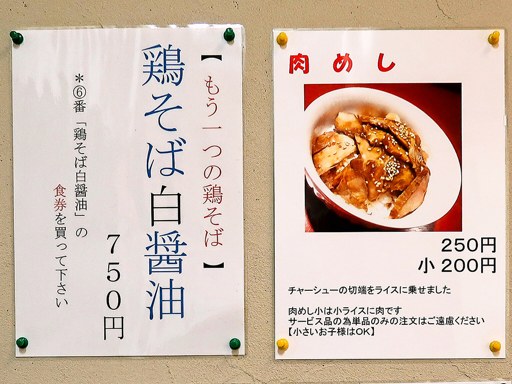 【もう一つの鶏そば】
鶏そば白醤油
750円
＊⑥番「鶏そば白醤油」の
食券を買って下さい
肉めし
250円
小 200円
チャーシューの切端をライスに乗せました
肉めし小は小ライスに肉です
サービス品の為単品のみの注文はご遠慮ください
【小さいお子様はOK】